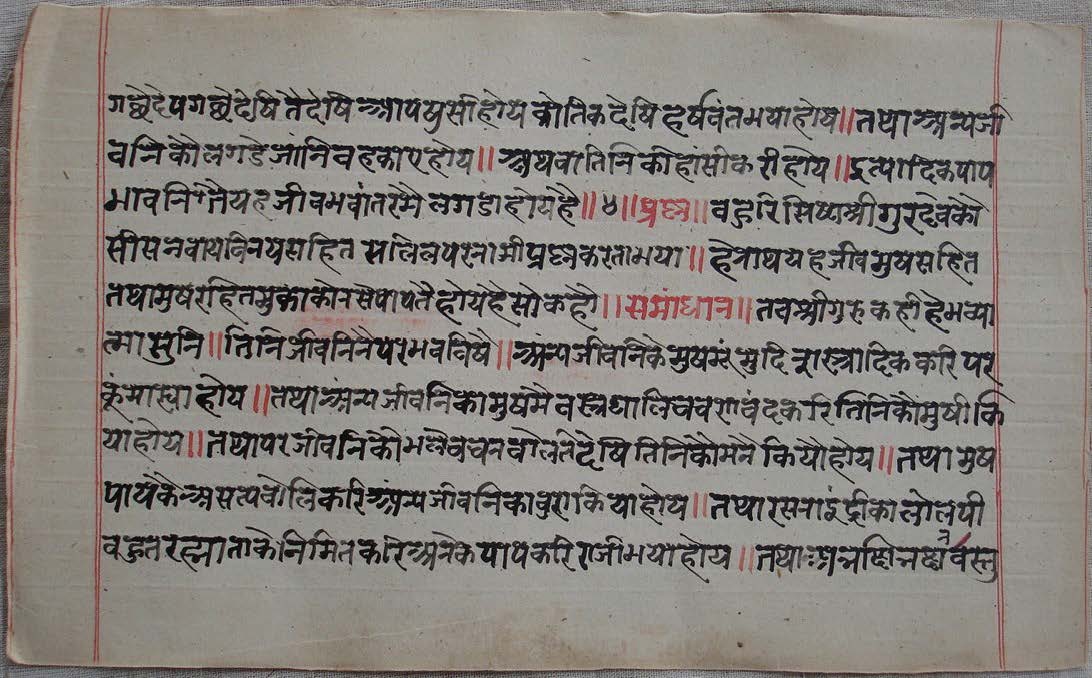 गछैदेषगछैदेषितैदेषिआपषुसीहोय कौतिकदेषिहर्षवंतभयाहोय॥तथाअन्यजी
वनिकौलगडेजांनिवहकाएहोय॥ अथवातिनिकीहांसीकरीहोय॥इत्यादिकपाप
भावनितैंयहजीवभवांतरमैलगडाहोयहै॥४॥प्रष्ण॥वहुरिसिष्यश्रीगुरदेवकौ
सीसनवायविनयसहित सलिलपरनामीप्रष्णकरताभया॥हेनाथयहजीवमुषसहित
तथामुषरहितमुकाकौनसैपापतैहोयहैसोकहौ॥समाधान॥तवश्रीगुरुकहीहेभव्या
त्मासुनि॥तिनिजीवनिनैपरभवविषै॥अन्यजीवनिकेमुष मुदिशस्त्रादिककरिपर
कूंमास्याहोय॥तथाअंन्यजीवनिकामुषमैवस्त्रघालिवचरावंदकरितिनिकौंमुषीकि
याहोय॥तथापरजीवनिकौभलेवचनवोलतेदेषितिनिकौमनैकियौहोय॥तथामुष
पायकेंअसत्यवोलिकरिअंन्यजीवनिकावुराकियाहोय॥तथारसनाइंद्रीकालोलपी
वहुतरह्माताकेनिमितकरिअनेकपापकरिराजीभयाहोय॥तथा वस्तु